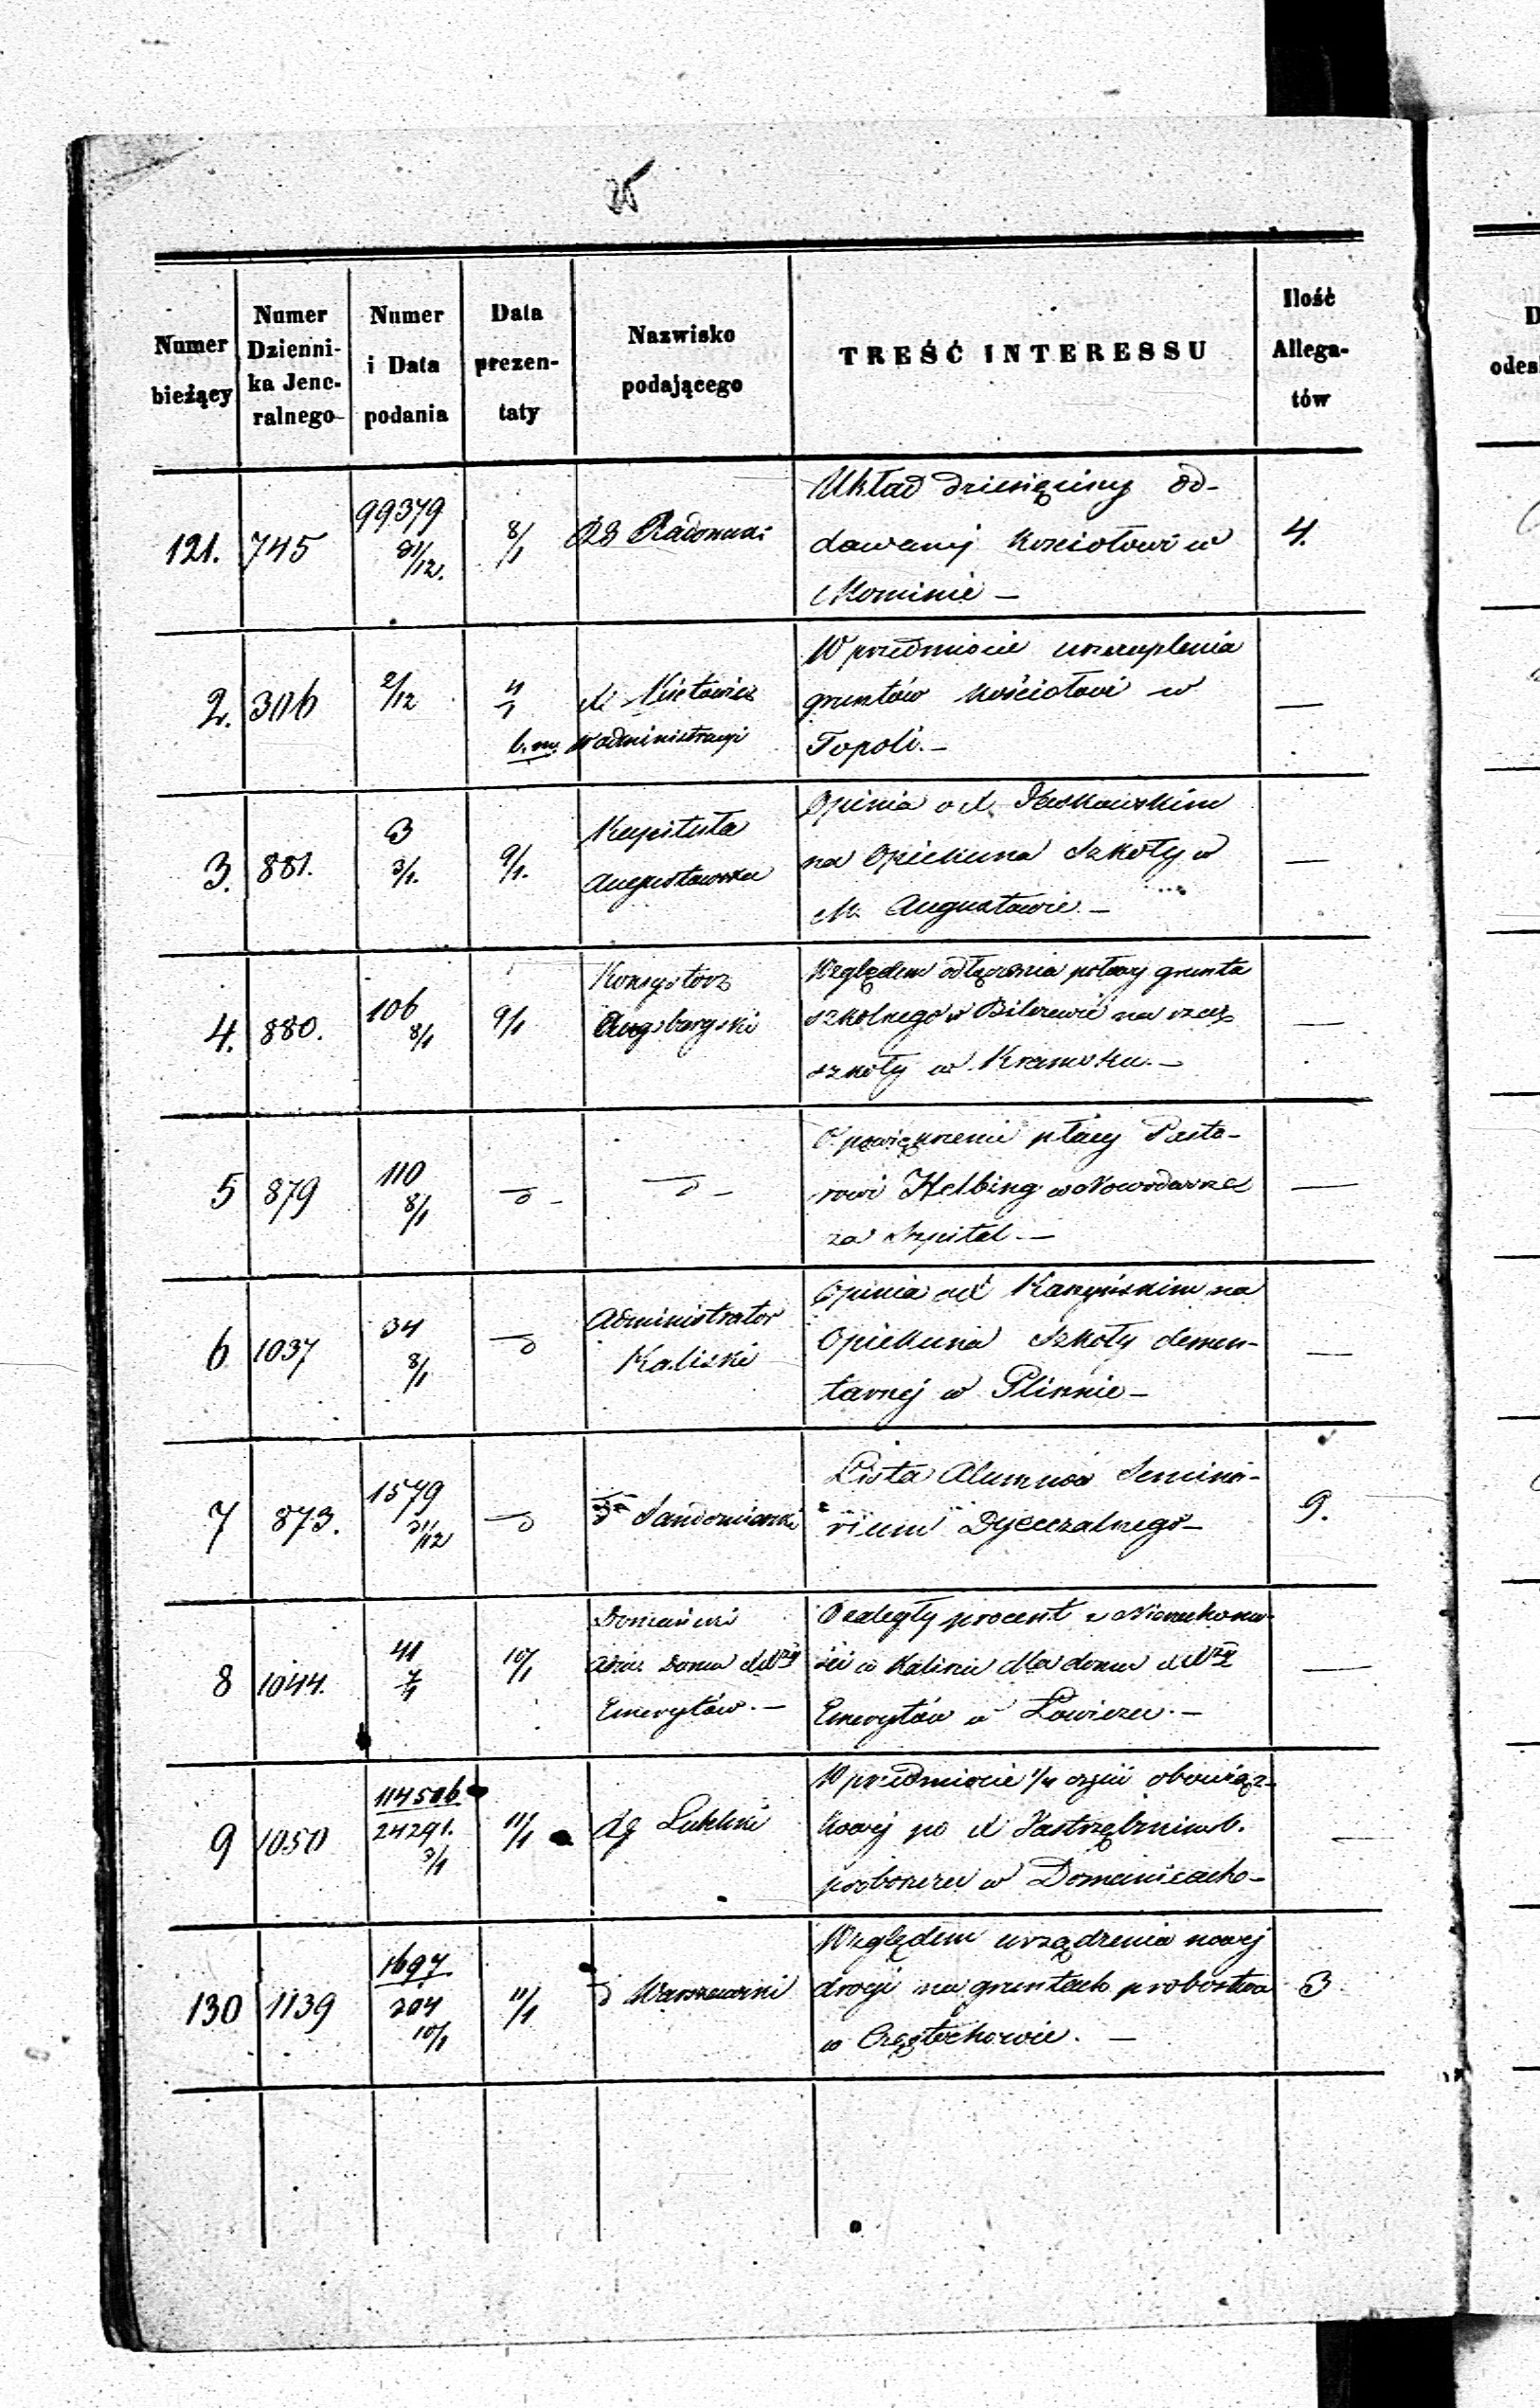 25
Numer bieżący | Numer Dzienni- ka Jene- ralnego | Numer i Data podania | Data prezen- taty | Nazwisko podającego | TREŚĆ INTERESSU | Ilość Allega- tów
121. 745 99379 31/12. 8/1 Radomski 4.
Układ dziesięciny od-
dawanej Kościołowi w
Mominie —
2. 306 2/12 4/1 b.m. w administracyi —
W przedmiocie uszczuplenia
gruntów kościołowi w
Topoli. —
3. 881. 3 3/1. 9/1. Kapituła Augustowska —
Opinia o X.
na Opiekuna Szkoły w
M. Augustowie. —
4. 880. 106 8/1 9/1 Konsystorz Augsburgski —
Względem odłączenia połowy gruntu
szkolnego w na rzecz
szkoły w Kramsku. —
5 879 110 8/1 —d— —d— —
O powiększenie płacy Pasto-
rowi Helbing w
za Szpital. —
6 1037 34 8/1 —d Administrator Kaliski —
Opinia o X Karzyńskim na
Opiekuna Szkoły elemen-
tarnej w —
7 873. 1579 31/12 —d d Sandomierski 9.
Lista Alumnów Semina-
rium Dyecezalnego —
8 1044. 41 7/1 10/1 Domu XXży Emerytów. — —
O zaległy procent z Nieruchomo-
ści w Kalinie dla domu XXży
Emerytów w Łowiczu. —
9 1050 114506 24291. 3/1 11/1 Lubelski —
W przedmiocie 1/4 części obowiąz-
kowej po X Jastrzębskim b.
proboszczu w Domanicach —
130 1139 1697 204 10/1 11/1 d Warszawski 3
Względem urządzenia nowej
drogi na gruntach probostwa
w Częstochowie. —